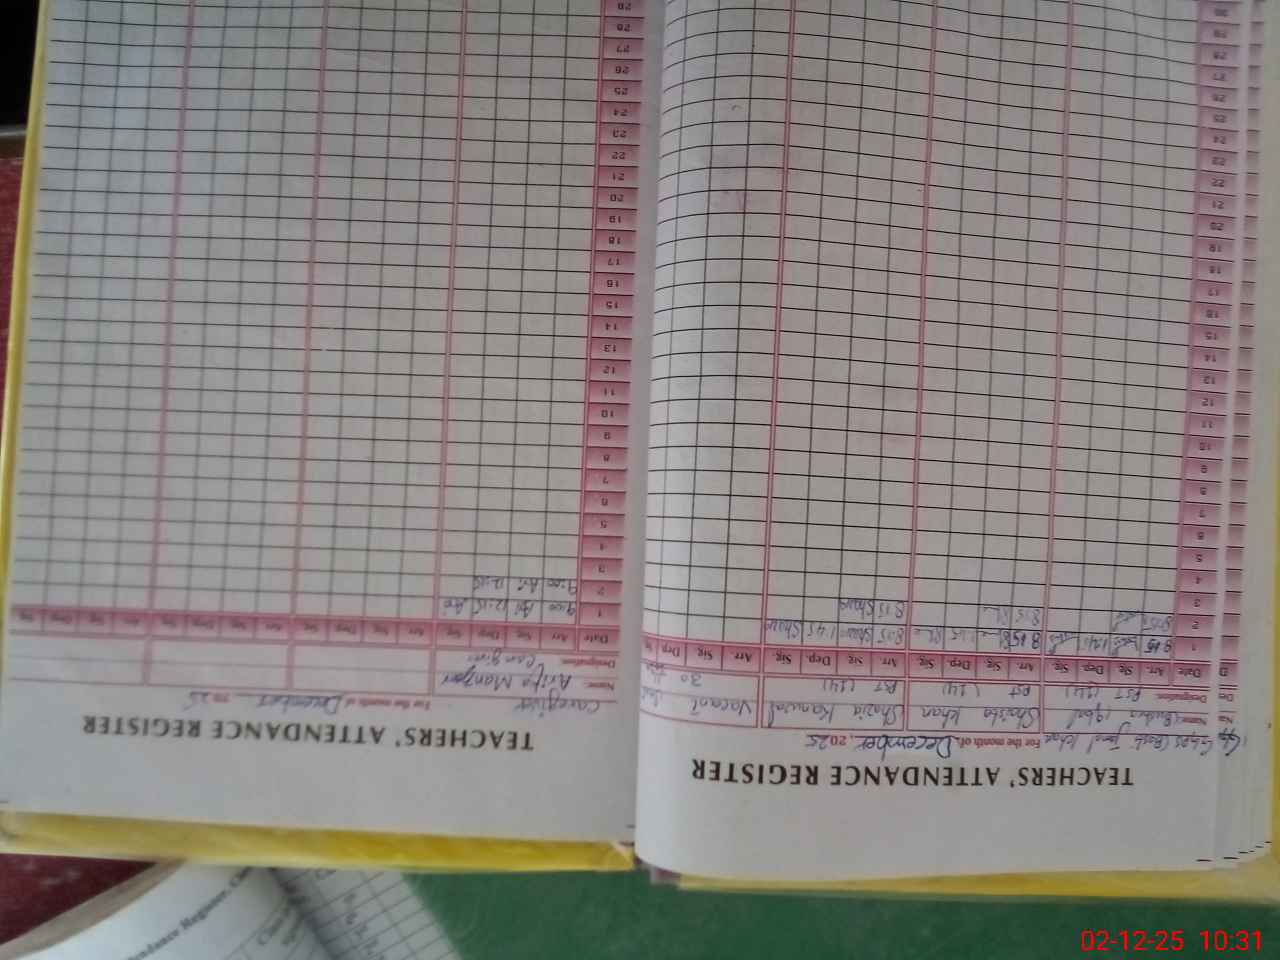 TEACHERS' ATTENDANCE REGISTER
For the month of December, 2025
Name: Bushra Iqbal Shaista Khan Shazia Kanwal Vacant
Designation: PST (14) PST (14) PST (14)
Date Arr. Sig. Dep. Sig. Arr. Sig. Dep. Sig. Arr. Sig. Dep. Sig. Arr. Sig. Dep. Sig.
1 8:15 1:45 8:15 1:45
2 8:15 8:15
3
4
5
6
7
8
9
10
11
12
13
14
15
16
17
18
19
20
21
22
23
24
25
26
27
28
29
30
TEACHERS' ATTENDANCE REGISTER
Caregiver For the month of December 2025
Name: Arifa Manzoor
Designation: Care giver
Date Arr. Sig. Dep. Sig. Arr. Sig. Dep. Sig. Arr. Sig. Dep. Sig. Arr. Sig. Dep. Sig.
1 9:00 12:15
2 9:00 12:15
3
4
5
6
7
8
9
10
11
12
13
14
15
16
17
18
19
20
21
22
23
24
25
26
27
28
29
ndance Register, C
02-12-25 10:31